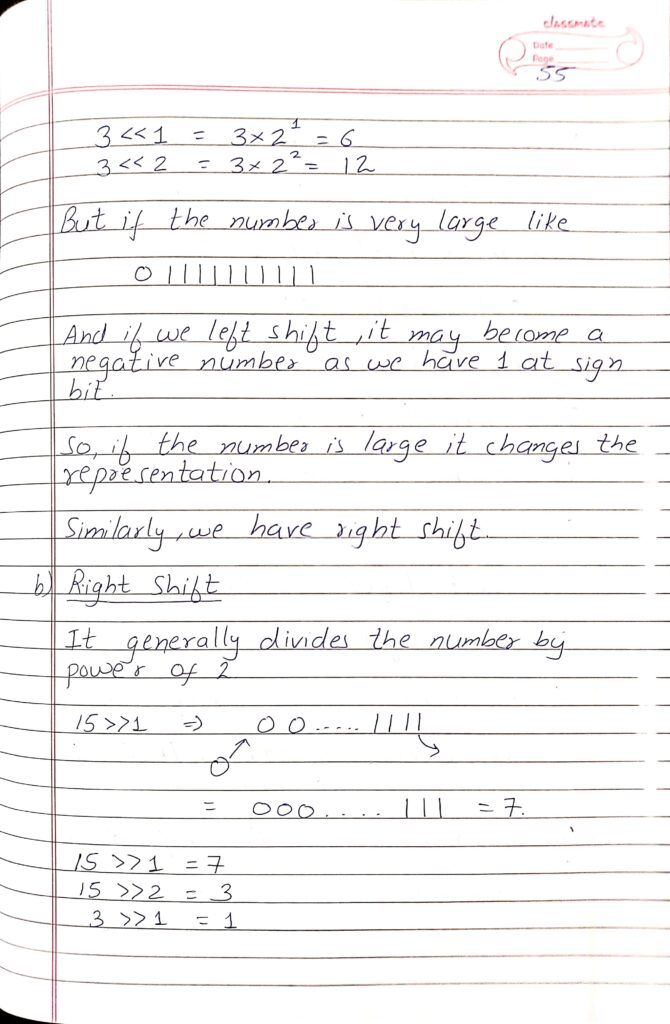 classmate
Date
Page
55
3 << 1 = 3 × 2¹ = 6
3 << 2 = 3 × 2² = 12
But if the number is very large like
0 1 1 1 1 1 1 1 1 1 1
And if we left shift, it may become a
negative number as we have 1 at sign
bit.
So, if the number is large it changes the
representation.
Similarly, we have right shift.
b) Right Shift
It generally divides the number by
power of 2
15 >> 1 ⇒ 0 0 ..... 1 1 1 1
0
= 0 0 0 .... 1 1 1 = 7.
15 >> 1 = 7
15 >> 2 = 3
3 >> 1 = 1